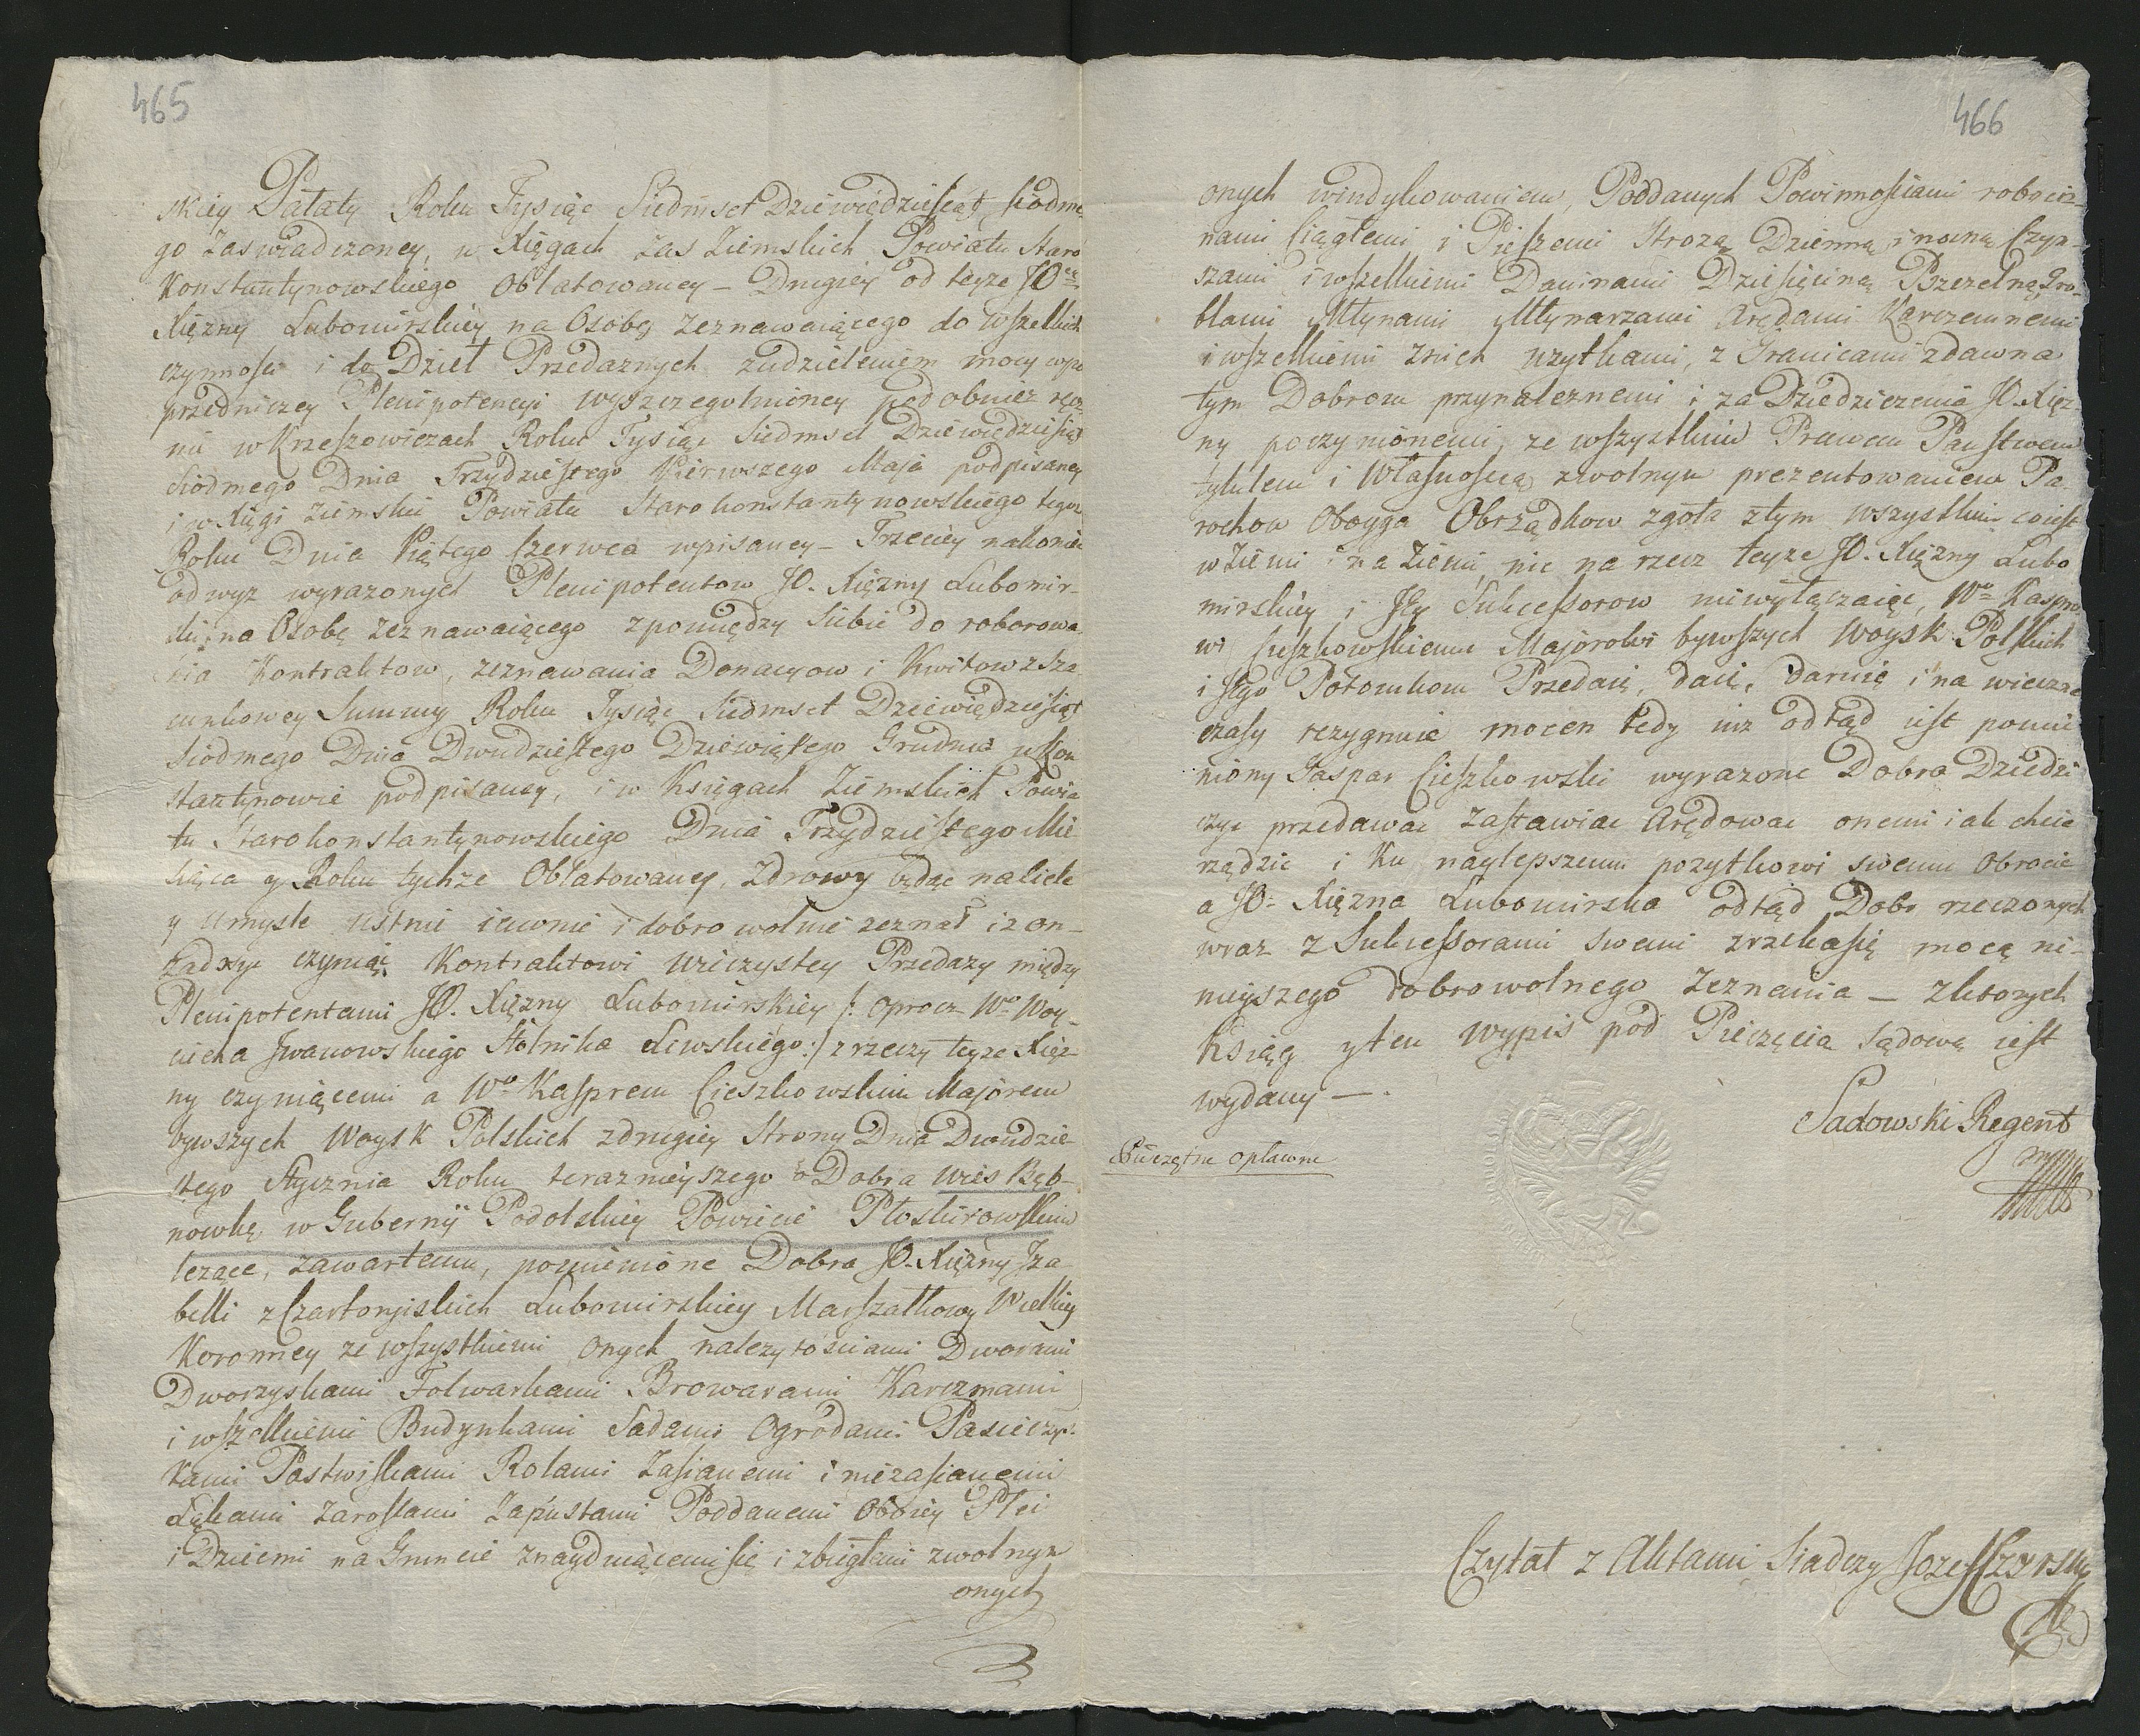 465
skiey Pałaty Roku Tysiąc Siedmset Dziewiędziesiąt siodme
go zaswiadczoney, w Xięgach zas Ziemskich Powiatu Staro
Konstantynowskiego Oblatowaney – Drugiey od teyze JO
Xiężny Lubomirskiey na Osobę zeznawaiącego do wszelkich
czynnosci i do Dzieł Przedaznych z udzieleniem mocy wpo
przedniczey Plenipotencyi wyszczegulnioney podobnież ręcz
nie w Krzeszowiczach Roku Tysiąc Siedmset Dziewiędziesiąt
Siodmego Dnia Trzydziestego Pierwszego Maja podpisaney
i w Xięgi Ziemskie Powiatu Starokonstantynowskiego tegoz
Roku Dnia Piątego Czerwca wpisaney – Trzeciey nakoniec
od wyz wyrazonych Plenipotentow JO. Xiężny Lubomir-
skiey na Osobę zeznawaiącego zpomiędzy siebie do roborowa
nia Kontraktow, zeznawania Donacyow i Kwitow z Sza
cunkowey Summy Roku Tysiąc Siedmset Dziewiędziesiąt
Siodmego Dnia Dwudziestego Dziewiątego Grudnia w Kon
stantynowie podpisaney, i w Księgach Ziemskich Powia
tu Starokonstantynowskiego Dnia Trzydziestego Mie
siąca y Roku tychze Oblatowaney. Zdrowy będąc na ciele
y umysle ustnie iawnie i dobrowolnie zeznał iz on-
zadosyc czyniąc Kontraktowi wieczystey Przedazy między
Plenipotentami JO. Xiężny Lubomirskiey /: oprocz Wo Woy-
ciecha Iwanowskiego Stolnika Lewskiego :/ z rzeczy teyze Xięz-
ny czyniącemi a Wo Kasprem Cieszkowskim Majorem
bywszych Woysk Polskich z drugiey Strony Dnia Dwudzie
stego Stycznia Roku terazniejszego o Dobra wies Bęb-
nowkę w Gubernij Podolskiey Powiecie Płoskirowskim
lezące, zawartemu, pomienione Dobra JO. Xiężny Iza
belli z Czartoryiskich Lubomirskiey Marszałkowy Wielkiey
Koronney ze wszystkiemi onych nalezytosciami Dworami
Dworzyskami Folwarkami Browarami Karczmami
i wszelkiemi Budynkami Sadami Ogrodami Pasieczys-
kami Pastwiskami Rolami Zasianemi i niezasianemi
Łąkami Zaroslami Zapustami Poddanemi Oboiey Płci
i Dziecmi na Gruncie znayduiącemi się i zbiegłemi z wolnym
onych
466
onych windykowaniem, Poddanych Powinnosciami robocizn
nami Ciągłemi i Pieszemi Strozą Dzienną i nocną Czyn-
szami i wszelkiemi Daninami Dziesięciną Pszczelną Gro-
blami Młynami Młynarzami Arędami Karczemnemi
i wszelkiemi znich uzytkami, z Granicami zdawna
tym Dobrom przynaleznemi i za Dziedziczenia JO. Xięz
ny poczynionemi, ze wszystkim Prawem Panstwem
tytułem i Własnoscią z wolnym prezentowaniem Pa-
rochow Oboyga Obrządkow zgoła z tym wszystkim co iest
w Ziemi i na Ziemi, nic na rzecz teyze JO. Xiężny Lubo
mirskiey i Jey Sukcessorow niewyłączaiąc, Wo Kaspro
wi Cieszkowskiemu Majorowi bywszych Woysk Polskich
i Jego Potomkom Przedaie, daie, daruie i na wieczne
czasy rezygnuie mocen tedy iuz odtąd iest pomie
niony Kaspar Cieszkowski wyrazone Dobra Dziedzi
czyc przedawac Zastawiac Arędowac onemi iak chcie
rządzic i Ku naylepszemu pozytkowi swemu obrocic
a JO. Xięzna Lubomirska odtąd Dobr rzeczonych
wraz z Sukcessorami swemi zrzeka się mocą ni-
nieyszego dobrowolnego Zeznania – z ktorych
Ksiąg y ten wypis pod Pieczęcia sądową iest
wydany – .
Pieczętne opłacone
Sadowski Regent
mp
Czytał z Aktami Siadczy Jozef